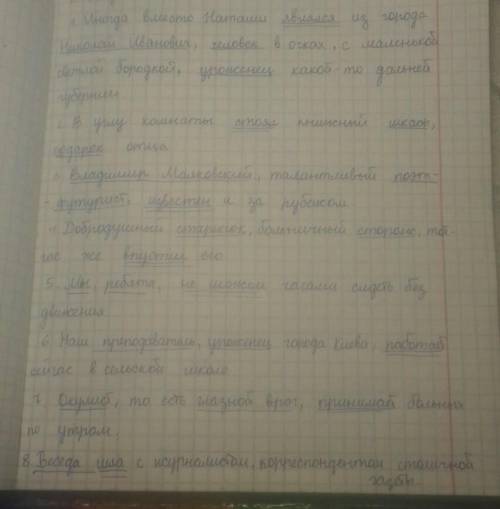 1. Иногда вместо Наташи являлся из города
Николай Иванович, человек в очках, с маленькой
светлой бородкой, уроженец какой-то дальней
губернии
2. В углу комнаты стоял книжный шкаф,
подарок отца
3. Владимир Маяковский, талантливый поэт-
-футурист, известен и за рубежом
4. Добродушный старичок, больничный сторож, тот-
час же впустил его
5. Мы, ребята, не можем часами сидеть без
движения
6. Наш преподаватель, уроженец города Киева, работае
сейчас в сельской школе
7. Окулист, то есть глазной врач, принимал больных
по утрам.
8. Беседа шла с журналистом, корреспондентом столичной
газеты